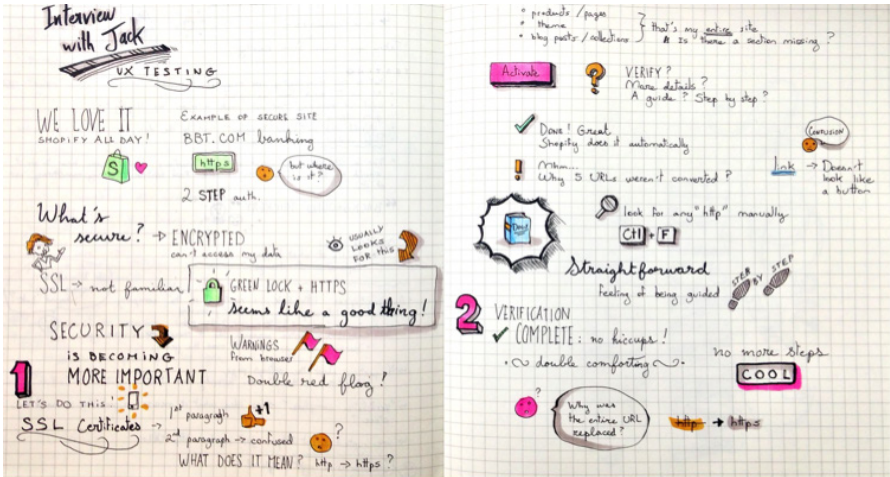 Interview
with Jack
UX TESTING
WE LOVE IT
SHOPIFY ALL DAY!
S
EXAMPLE OF SECURE SITE
BBT.COM banking
https
but where
is it?
2 STEP auth.
What's
secure? → ENCRYPTED
can't access my data
USUALLY
LOOKS
FOR THIS
SSL → not familiar
GREEN LOCK + HTTPS
seems like a good thing!
SECURITY
IS BECOMING
MORE IMPORTANT
WARNINGS
from browser
Double red flag!
1
LET'S DO THIS!
SSL Certificates →
1st paragraph +1
2nd paragraph → confused ?
WHAT DOES IT MEAN? http → https ?
• products/pages
• theme
• blog posts/collections
that's my entire site
Is there a section missing?
Activate
?
VERIFY?
More details?
A guide? Step by step?
✓ Done! Great
Shopify does it automatically
! Mhm...
Why 5 URLs weren't converted?
CONFUSION
Link → Doesn't
look like
a button
look for any "http" manually
Ctl + F
Straightforward
Feeling of being guided
STEP
BY
STEP
2
VERIFICATION
✓ COMPLETE: no hiccups!
• ~ double comforting ~ •
no more steps
COOL
?
Why was
the entire URL
replaced?
http → https